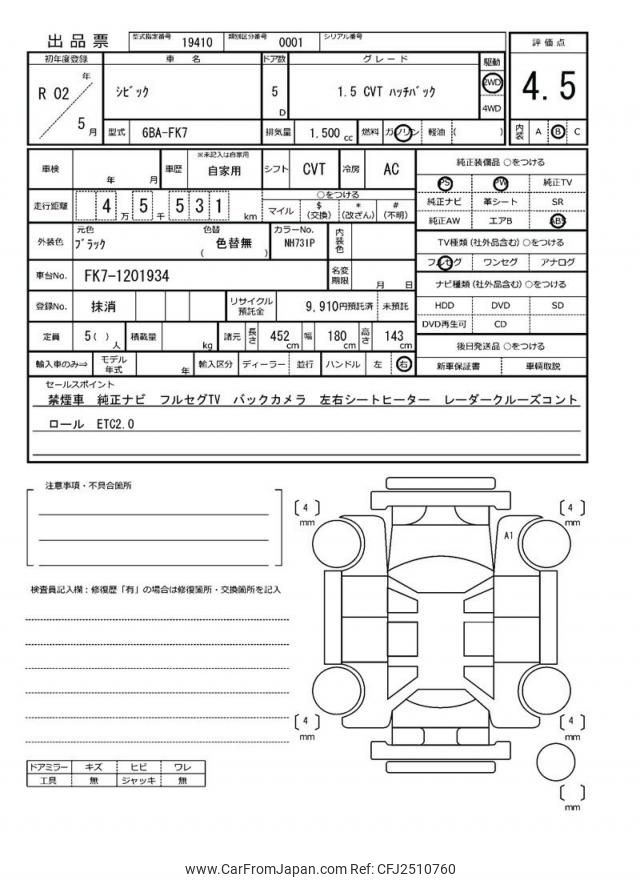 出品票 型式指定番号 19410 類別区分番号 0001 シリアル番号
初年度登録 車 名 ドア数 グレード 駆動 評価点
R 02 年 ｼﾋﾞｯｸ 5 D 1.5 CVT ﾊｯﾁﾊﾞｯｸ 2WD 4.5
5 月 4WD
型式 6BA-FK7 排気量 1.500 cc 燃料 ガソリン 軽油 ( ) 内装 A B C
車検 年 月 車歴 ※未記入は自家用 自家用 シフト CVT 冷房 AC 純正装備品 ○をつける
PS PW 純正TV
走行距離 4 万 5 千 5 3 1 km ○をつける 純正ナビ 革シート SR
マイル $ (交換) * (改ざん) # (不明) 純正AW エアB ABS
外装色 元色 ﾌﾞﾗｯｸ 色替 色替無 ( ) カラーNo. NH731P 内装色 TV種類 (社外品含む) ○をつける
フルセグ ワンセグ アナログ
車台No. FK7-1201934 名変期限 月 日 ナビ種類 (社外品含む) ○をつける
登録No. 抹消 リサイクル預託金 9,910円預託済 未預託 HDD DVD SD
DVD再生可 CD
定員 5( ) 人 積載量 kg 諸元 長さ 452 cm 幅 180 cm 高さ 143 cm 後日発送品 ○をつける
輸入車のみ⇒ モデル年式 年 輸入区分 ディーラー 並行 ハンドル 左 右 新車保証書 車輌取説
セールスポイント
禁煙車 純正ナビ フルセグTV バックカメラ 左右シートヒーター レーダークルーズコント
ロール ETC2.0
注意事項・不具合箇所
4 mm
4 mm
A1
検査員記入欄：修復歴「有」の場合は修復箇所・交換箇所を記入
4 mm
4 mm
ドアミラー キズ ヒビ ワレ
工具 無 ジャッキ 無
mm
www.CarFromJapan.com Ref: CFJ2510760